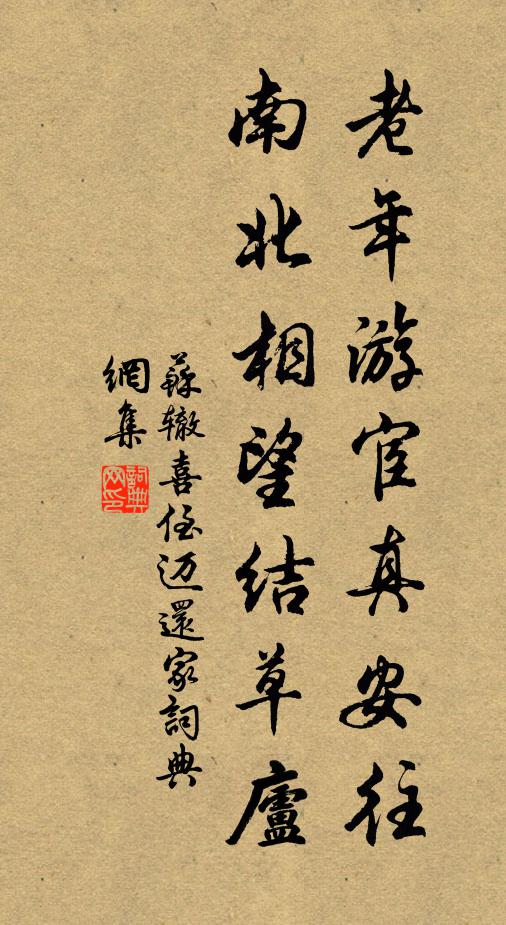 老年游宦真安往
南北相望结草廬
蘇辙喜侄迈還家詞典
網集
詞典
网印